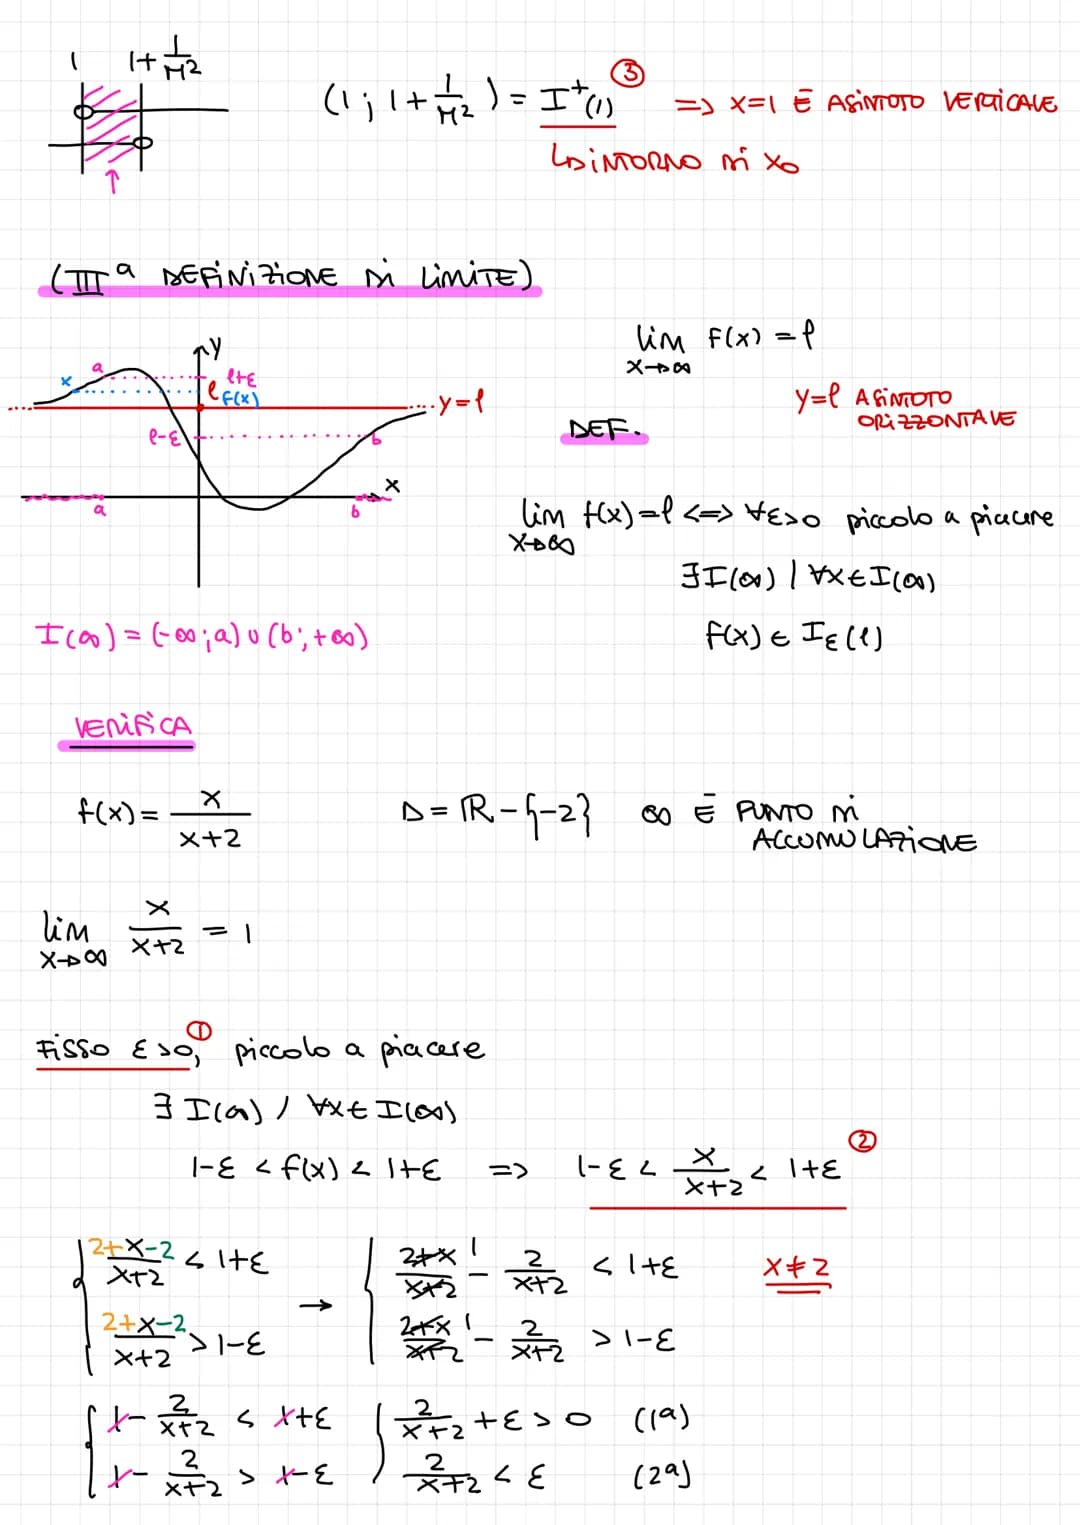 1 1+1/M²
(1; 1+1/M²) = I⁺(1) ③ => x=1 È ASINTOTO VERTICALE
↳ INTORNO DI x₀
(IIIª DEFINIZIONE DI LIMITE)
lim f(x) = l
x→∞
y=l ASINTOTO ORIZZONTALE
y
x a l+ε
l f(x)
y=l
l-ε b
x
a b
DEF.
lim f(x)=l <=> ∀ε>0 piccolo a piacere
x→∞
∃I(∞) | ∀x∈I(∞)
I(∞) = (-∞;a) ∪ (b;+∞)
f(x) ∈ Iε(l)
VERIFICA
f(x) = x/(x+2) D = ℝ-{-2} ∞ È PUNTO DI ACCUMULAZIONE
lim x/(x+2) = 1
x→∞
FISSO ε>0, ① piccolo a piacere
∃ I(∞) / ∀x∈ I(∞)
1-ε < f(x) < 1+ε => 1-ε < x/(x+2) < 1+ε ②
{ (2+x-2)/(x+2) < 1+ε → { (2+x)/(x+2) 1 - 2/(x+2) < 1+ε x≠2
(2+x-2)/(x+2) > 1-ε (2+x)/(x+2) 1 - 2/(x+2) > 1-ε
{ 1 - 2/(x+2) < 1+ε { 2/(x+2) + ε > 0 (1ª)
1 - 2/(x+2) > 1-ε 2/(x+2) < ε (2ª)